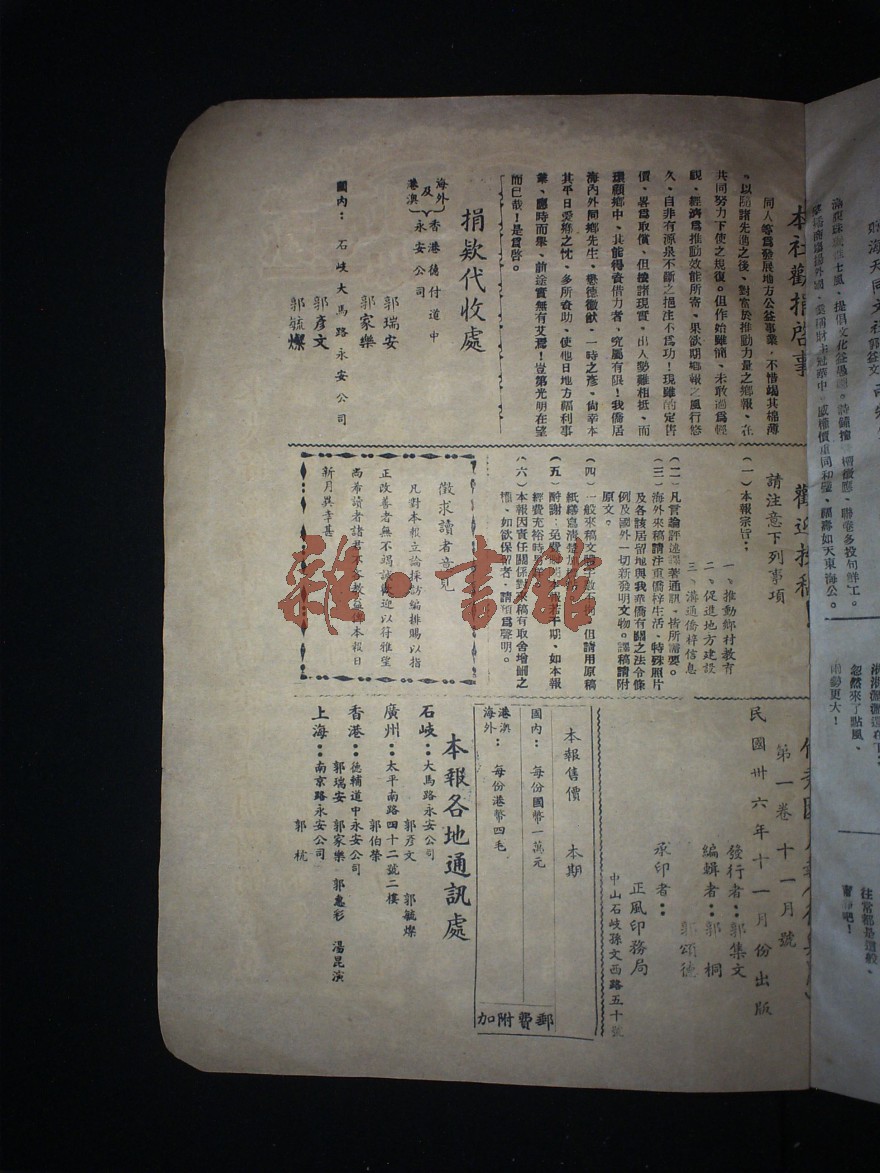 本社勸捐啓事
同人等爲發展地方公益事業，不惜竭其棉薄
，以隨諸先進之後、對富於推動力量之鄉報、在
共同努力下使之規復。但作始雖簡、未敢過爲輕
視、經濟爲推動效能所寄、果欲期鄉報之風行悠
久、自非有源泉不斷之挹注不爲功！現雖酌定售
價、畧爲取償、但按諸現實、出入勢難相抵、而
環顧鄉中、其能得資借力者、究屬有限！我僑居
海內外同鄉先生、懋德徽猷、一時之彥、尙幸本
其平日愛鄉之忱、多所資助、使他日地方福利事
業、應時而舉、前途實無有艾焉！豈第光明在望
而已哉！是爲啓。
捐欵代收處
海外及港澳
香港德付道中
永安公司
郭瑞安
郭家樂
國內：石岐大馬路永安公司
郭彥文
郭毓燦
歡迎投稿
請注意下列事項
（一）本報宗旨：
一、推動鄉村教育
二、促進地方建設
三、溝通僑梓信息
（二）凡言論評述譯著通訊、皆所需要。
（三）海外來稿請注重僑梓生活、特殊照片
及各該居留地與我華僑有關之法令條
例及國外一切新發明文物。譯稿請附
原文。
（四）一般來稿文體字數不拘、但請用原稿
紙繕寫清楚加
（五）酬謝：免費 本報若干期、如本報
經費充裕時另
（六）本報因責任關係對來稿有取舍增刪之
權、如欲保留者、請預爲聲明。
徵求讀者意見
凡對本報立論採訪編排賜以指
正改善者無不竭誠歡迎以符雅望
尚希讀者諸君不吝教益俾本報日
新月異幸甚
第一卷十一月號
民國卅六年十一月份出版
發行者：郭集文
編輯者：郭桐
郭頌德
承印者：
正風印務局
中山石岐孫文西路五十號
本報售價　本期
國內：每份國幣一萬元
港澳海外：每份港幣四毛
郵費附加
本報各地通訊處
石岐：大馬路永安公司
郭彥文　郭毓燦
廣州：太平南路四十二號二樓
郭伯榮
香港：德輔道中永安公司
郭瑞安　郭家樂　郭惠彩　湯昆演
上海：南京路永安公司
郭杭
忽然來了點風、
雨勢更大！
往常都是這般、